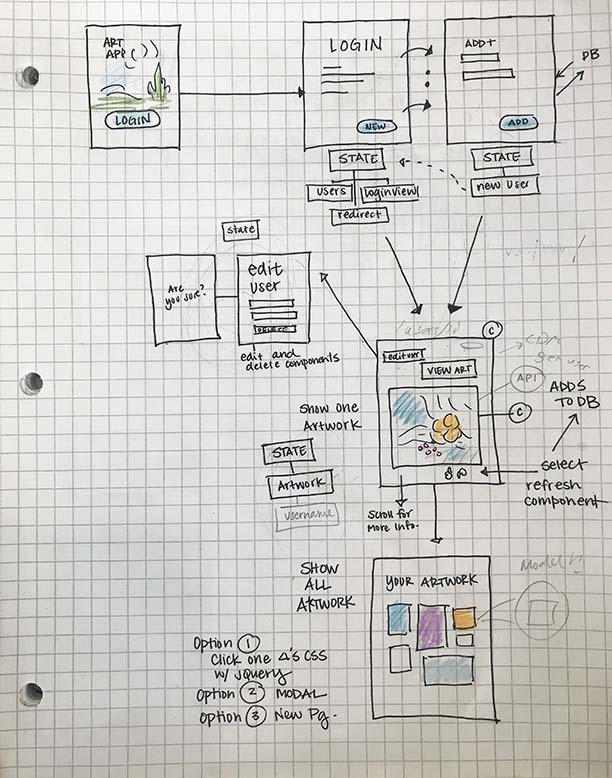 ART
APP
LOGIN
LOGIN
NEW
ADD+
ADD
DB
STATE
users
loginview
redirect
STATE
new user
state
Are
you sure?
edit
user
DELETE
edit and
delete components
/users/:id
edit user
VIEW ART
C
API
C
ADDS
TO DB
Show one
Artwork
STATE
Artwork
username
select
refresh
component
Scroll for
More info.
SHOW
ALL
ARTWORK
YOUR ARTWORK
Option 1
Click one Δ's CSS
w/ jquery
Option 2 MODAL
Option 3 New Pg.